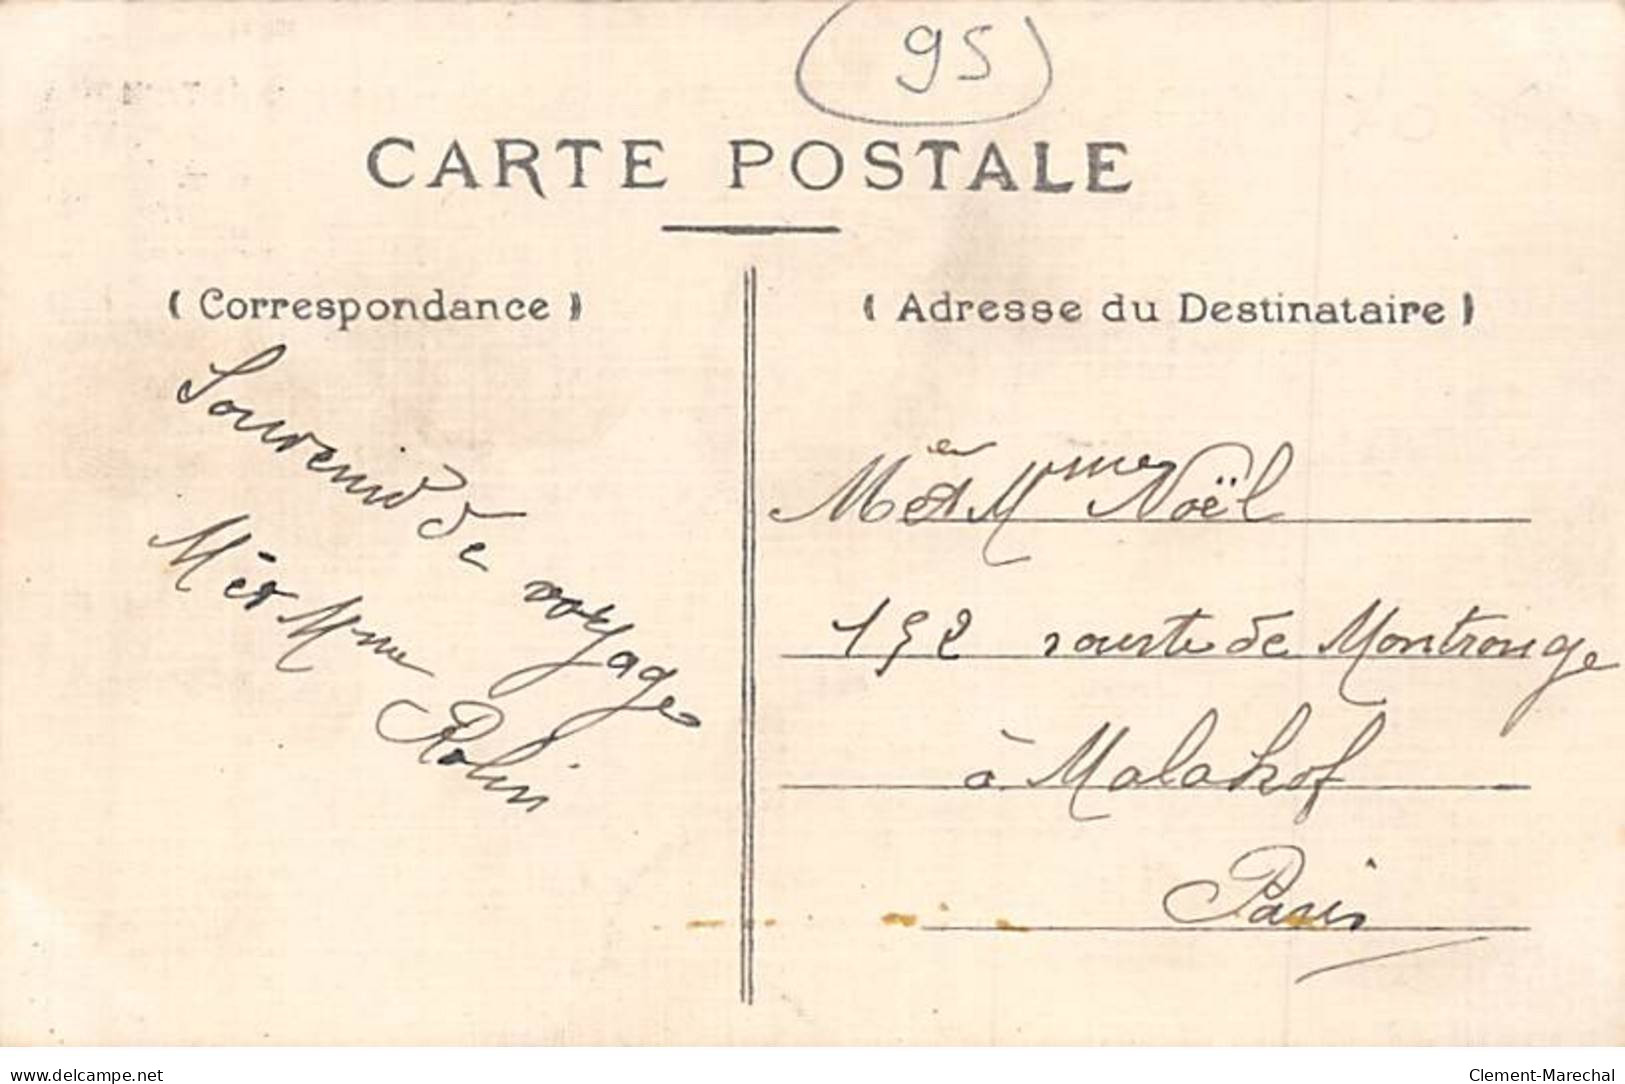 95
CARTE POSTALE
( Correspondance )
( Adresse du Destinataire )
Souvenir de voyage
M et Mme
Robin
M et Mme Noël
152 route de Montrouge
à Malakof
Paris
delcampe.net
Clement-Marechal